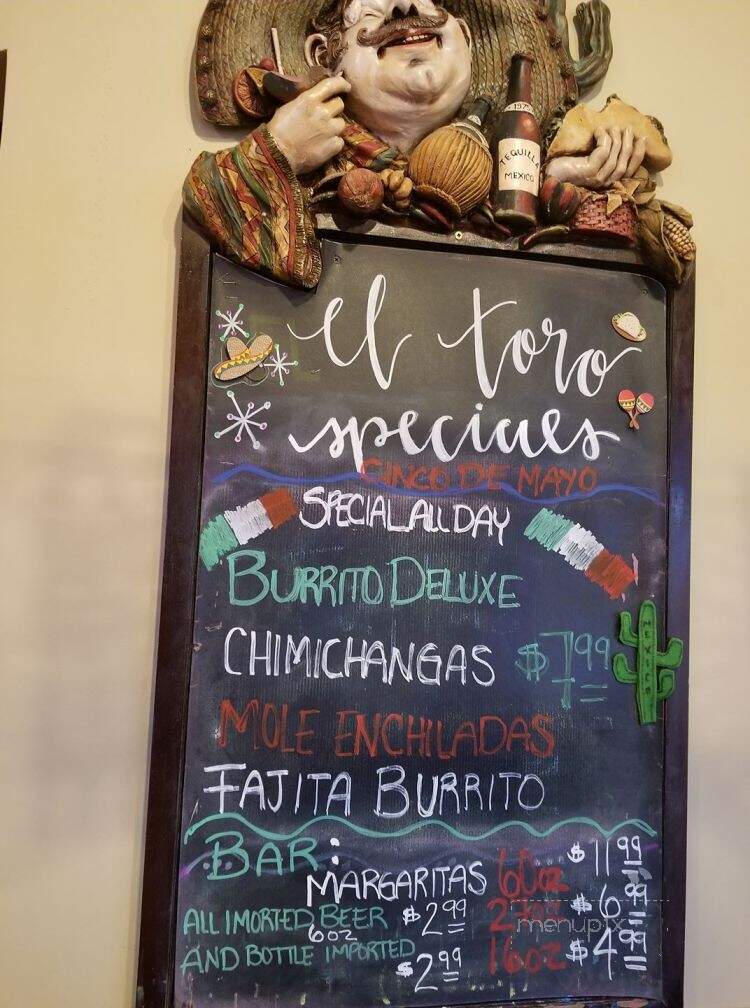 1975
TEQUILLA
MEXICO
el toro
specials
CINCO DE MAYO
SPECIAL ALL DAY
BURRITO DELUXE
CHIMICHANGAS $7.99
MEXICO
MOLE ENCHILADAS
FAJITA BURRITO
BAR:
MARGARITAS 60oz $11.99
ALL IMORTED BEER $2.99 27oz $6.99
6oz
AND BOTTLE IMPORTED $2.99 16oz $4.99
menupix